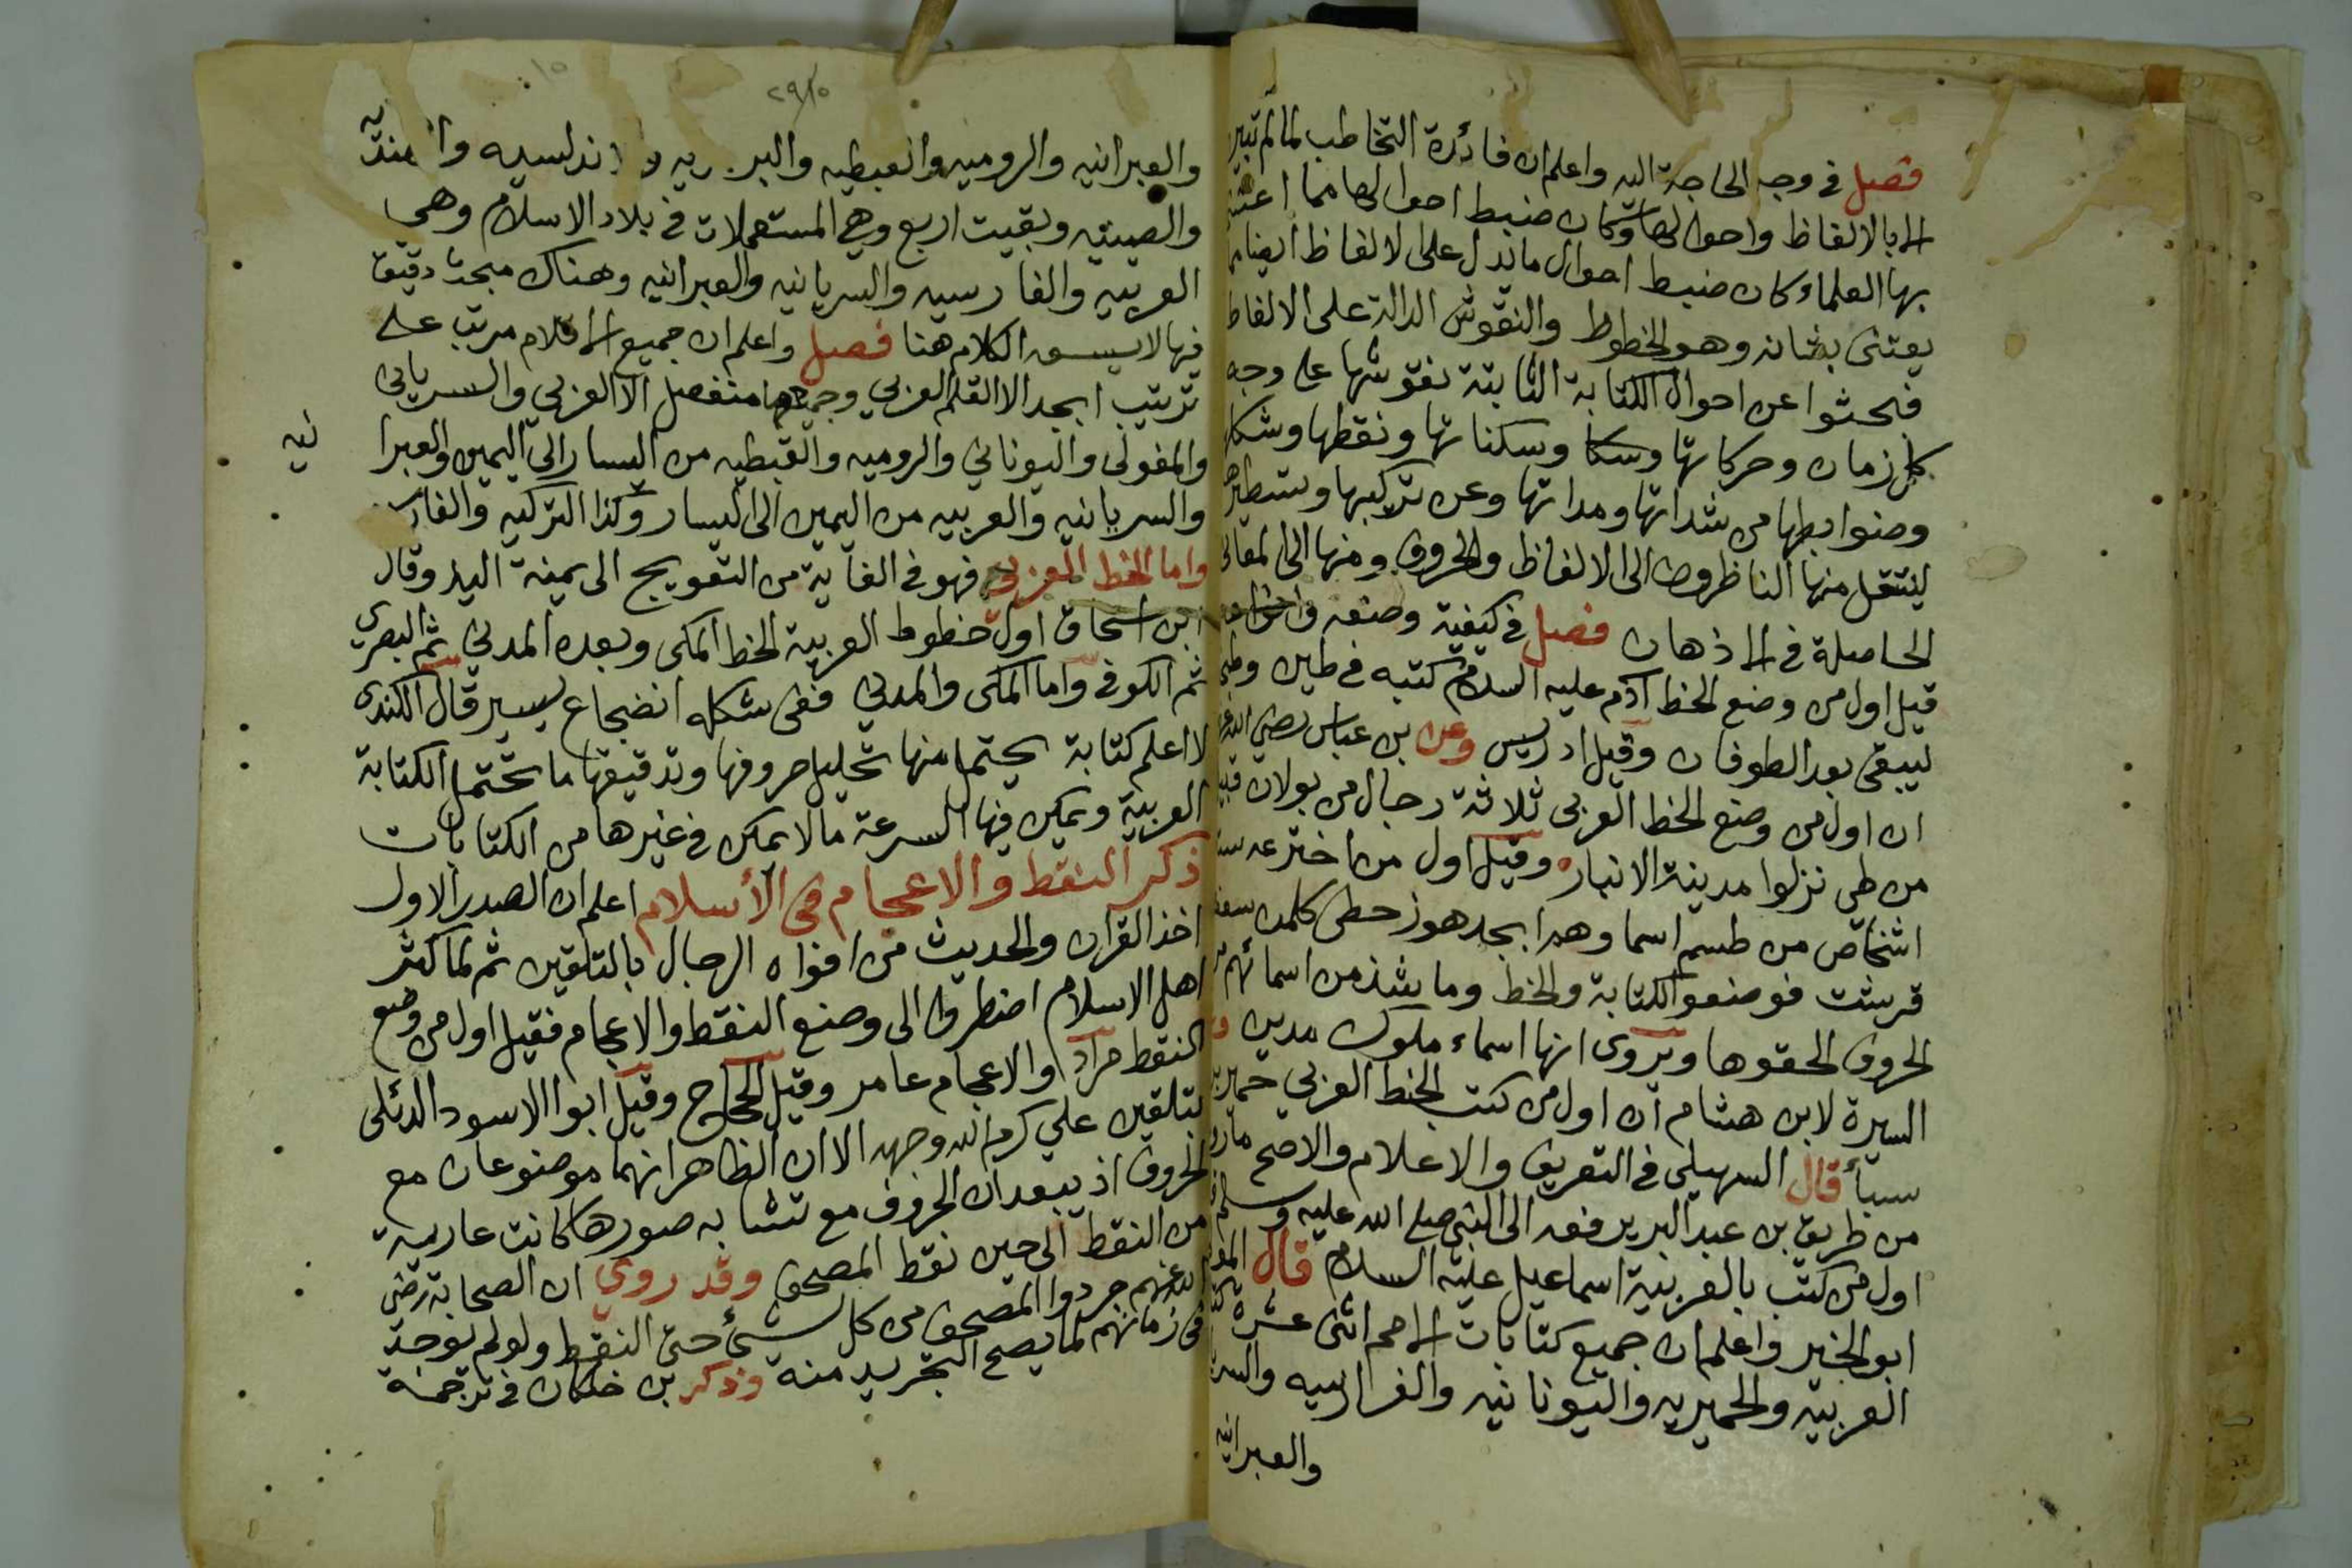 فصل في وجه الحاجة اليه واعلم ان فائدة التخاطب لما لم تتبين
الا بالالفاظ واحوالها وكان ضبط احوالها مما اعتنى
بها العلماء كان ضبط احوال ما يدل على الالفاظ ايضا مما
يعتنى بشانه وهو الخطوط والنقوش الدالة على الالفاظ
فبحثوا عن احوال الكتابة الثابتة نقوشها على وجه
كل زمان وحركاتها وسكا وسكناتها ونقطها وشكلها
وضوابطها من شداتها ومداتها وعن تركيبها وتسطيرها
لينتقل منها الناظرون الى الالفاظ والحروف ومنها الى المعاني
الحاصلة في الاذهان فصل في كيفية وضعه
قيل اول من وضع الخط آدم عليه السلام كتبه في طين وطبخه
ليبقى بعد الطوفان وقيل ادريس وعن بن عباس رضي الله عنه
ان اول من وضع الخط العربي ثلاثة رجال من بولان قبيلة
من طي نزلوا مدينة الانبار وقيل اول من اخترعه ستة
اشخاص من طسم اسما وهم ابجد هوز حطي كلمن سعفص
قرشت فوضعوا الكتابة والخط وما يشذ من اسمائهم من
الحروف الحقوها ويروى انها اسماء ملوك مدين
السيرة لابن هشام ان اول من كتب الخط العربي حمير بن
سبأ قال السهيلي في التعريف والاعلام والاصح ما رو
من طريق بن عبد البر يرفعه الى النبي صلى الله عليه وسلم
اول من كتب بالعربية اسماعيل عليه السلام قال المو
ابو الخير واعلم ان جميع كتابات الامم اثنى عشرة
العربيه والحميريه واليونانيه والفارسيه والسر
والعبرانيه
٢٩/١٥
١٥
والعبرانيه والروميه والقبطيه والبربريه والاندلسيه والهنديه
والصينيه وبقيت اربع وهي المستعملات في بلاد الاسلام وهي
العربيه والفارسيه والسريانيه والعبرانيه وهناك مبحث دقيق
فيها لا يسعه الكلام هنا فصل واعلم ان جميع الاقلام مرتب على
ترتيب ابجد الا القلم العربي وجميعها منفصل الا العربي والسرياني
والمغولى واليوناني والروميه والقبطيه من اليسار الى اليمين والعبرا
نيه
والسريانيه والعربيه من اليمين الى اليسار وكذا التركيه والفار
واما الخط العربي فهو في الغاية من التعويج الى يمنة اليد وقال
ابن اسحاق اول خطوط العربية الخط المكى وبعده المدني ثم البصري
ثم الكوفي واما المكى والمدني ففى شكله انضجاع يسير قال الكندى
لا اعلم كتابة يحتمل منها تحليل حروفها وتدقيقها ما تحتمل الكتابة
العربية ويمكن فيها السرعة ما لا يمكن في غيرها من الكتابات
ذكر النقط والاعجام في الأسلام اعلم ان الصدر الاول
اخذ القران والحديث من افواه الرجال بالتلقين ثم لما كثر
اهل الاسلام اضطروا الى وضع النقط والاعجام فقيل اول من وضع
النقط مراد والاعجام عامر وقيل الحجاج وقيل ابوا الاسود الدئلى
بتلقين علي كرم الله وجهه الا ان الظاهر انهما موضوعان مع
الحروف اذ يبعد ان الحروف مع تشابه صورها كانت عارية
من النقط الى حين نقط المصحف وقد روي ان الصحابة رضي
الله عنهم جردوا المصحف من كل شيء حتى النقط ولو لم توجد
في زمانهم لما يصح التجريد منه وذكر بن خلكان في ترجمة